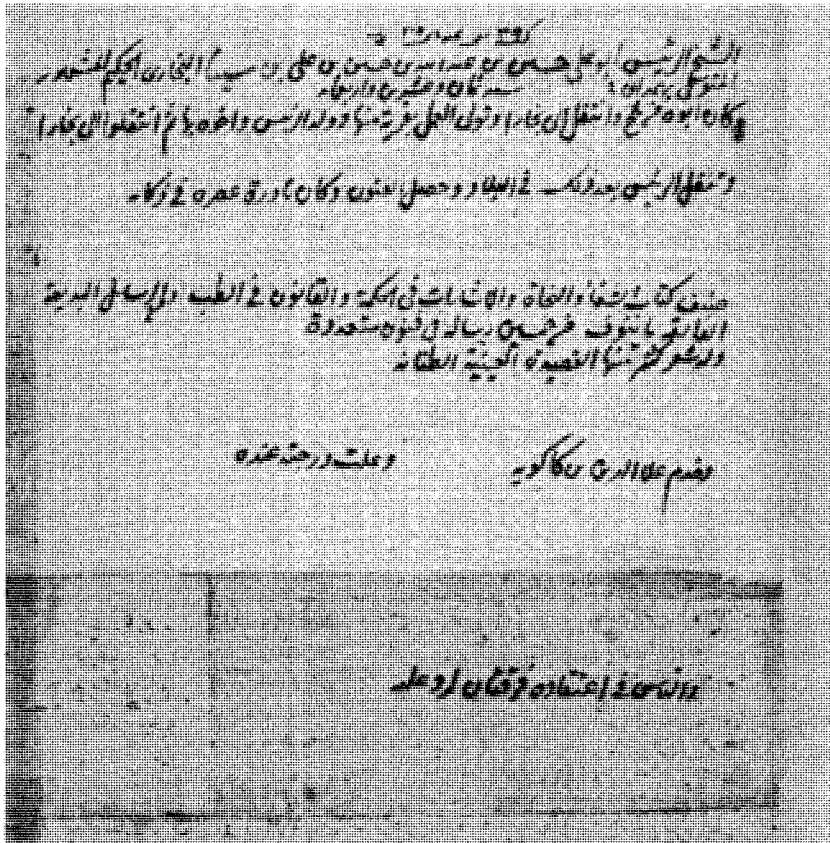 الشيخ الرئيس أبو علي حسين بن عبد الله بن حسن بن علي بن سينا البخاري الحكيم المشهور
المتوفى بهمدان سنة ثمان وعشرين وأربعمائة
وكان أبوه من بلخ وانتقل إلى بخارا وتولى العمل بقرية منها وولد الرئيس وأخوه بها ثم انتقلوا إلى بخارا
وتنقل الرئيس بعد ذلك في البلاد وحصل الفنون وكان نادرة عصره في ذكائه
صنف كتاب الشفاء والنجاة والإشارات في الحكمة والقانون في الطب والرسائل البديعة
رسالة في فنون متعددة
وله شعر منها القصيدة العينية
وخدم علاء الدين بن كاكويه وعلت درجته عنده
والناس في اعتقاده فرقتان له وعليه